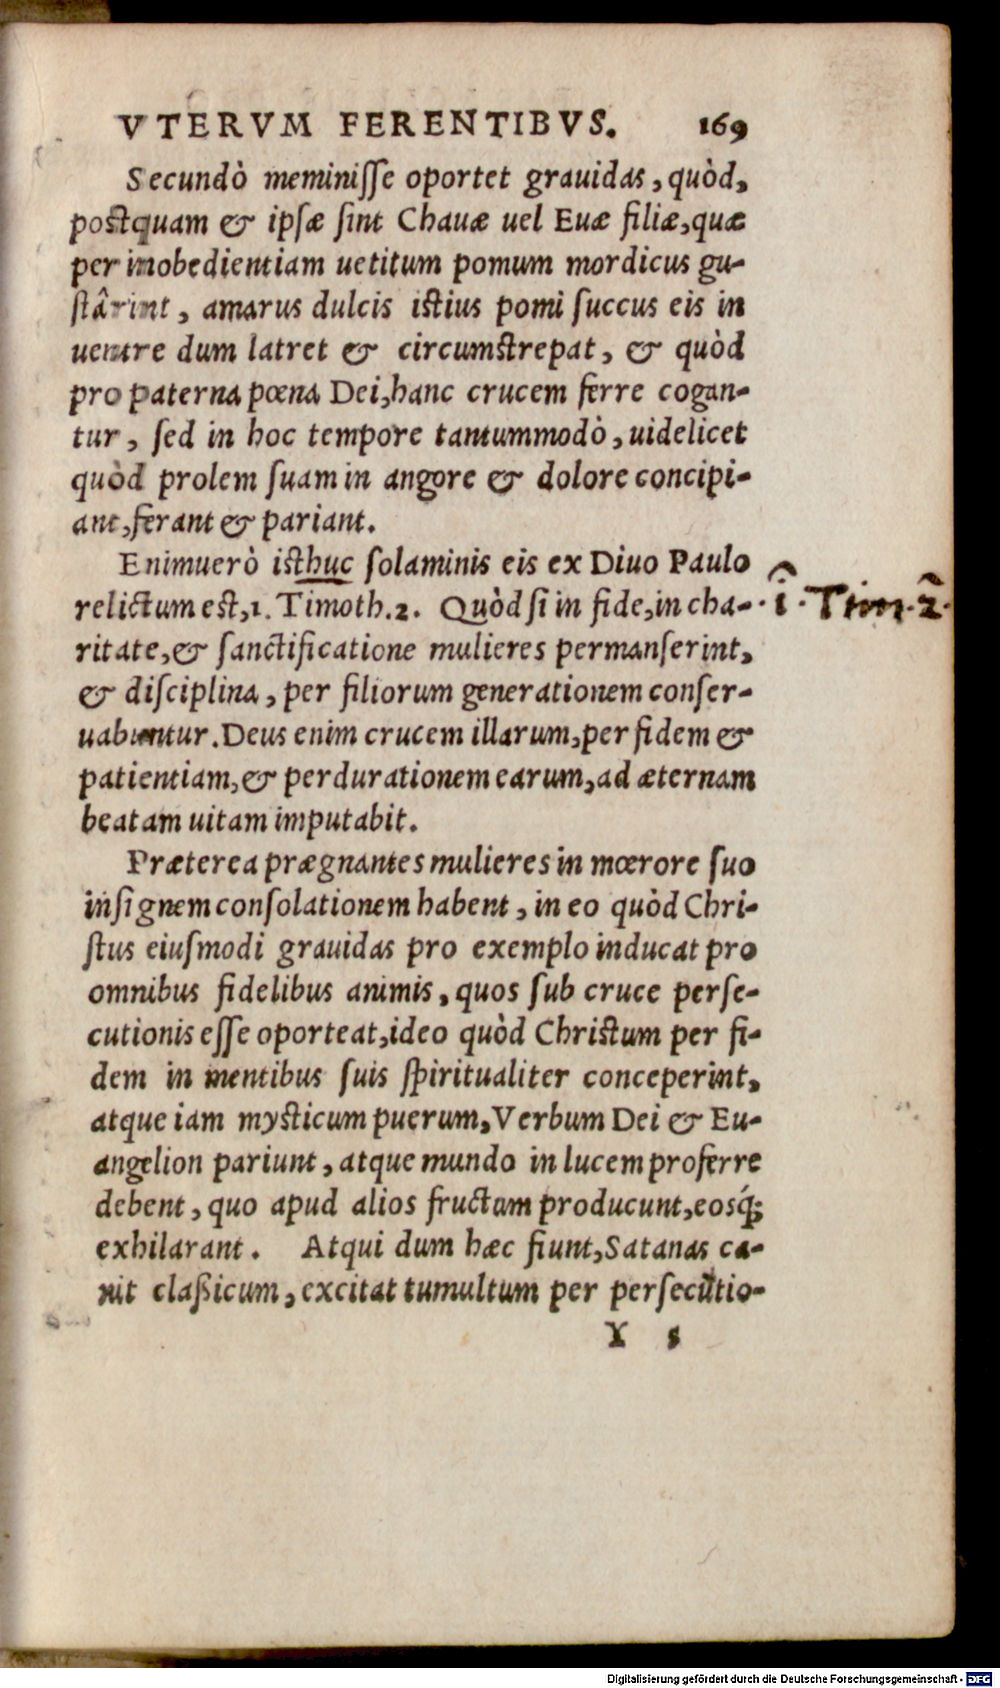 VTERVM FERENTIBVS. 169
Secundò meminiſſe oportet grauidas, quòd,
poſtquam & ipſæ ſint Chauæ uel Euæ filiæ, quæ
per inobedientiam uetitum pomum mordicus gu-
ſtârint, amarus dulcis iſtius pomi ſuccus eis in
uentre dum latret & circumſtrepat, & quòd
pro paterna pœna Dei, hanc crucem ferre cogan-
tur, ſed in hoc tempore tantummodò, uidelicet
quòd prolem ſuam in angore & dolore concipi-
ant, ferant & pariant.
Enimuerò iſthuc ſolaminis eis ex Diuo Paulo
relictum eſt, 1. Timoth. 2. Quòd ſi in fide, in cha- · i · Tim · 2 ·
ritate, & ſanctificatione mulieres permanſerint,
& diſciplina, per filiorum generationem conſer-
uabuntur. Deus enim crucem illarum, per fidem &
patientiam, & perdurationem earum, ad æternam
beatam uitam imputabit.
Præterea prægnantes mulieres in mœrore ſuo
inſignem conſolationem habent, in eo quòd Chri-
ſtus eiuſmodi grauidas pro exemplo inducat pro
omnibus fidelibus animis, quos ſub cruce perſe-
cutionis eſſe oporteat, ideo quòd Chriſtum per fi-
dem in mentibus ſuis ſpiritualiter conceperint,
atque iam myſticum puerum, Verbum Dei & Eu-
angelion pariunt, atque mundo in lucem proferre
debent, quo apud alios fructum producunt, eosq́;
exhilarant. Atqui dum hæc fiunt, Satanas ca-
nit claßicum, excitat tumultum per perſecutio-
Y s
Digitalisierung gefördert durch die Deutsche Forschungsgemeinschaft - DFG